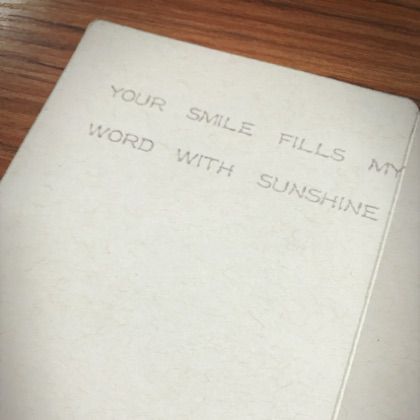 YOUR SMILE FILLS MY
WORD WITH SUNSHINE